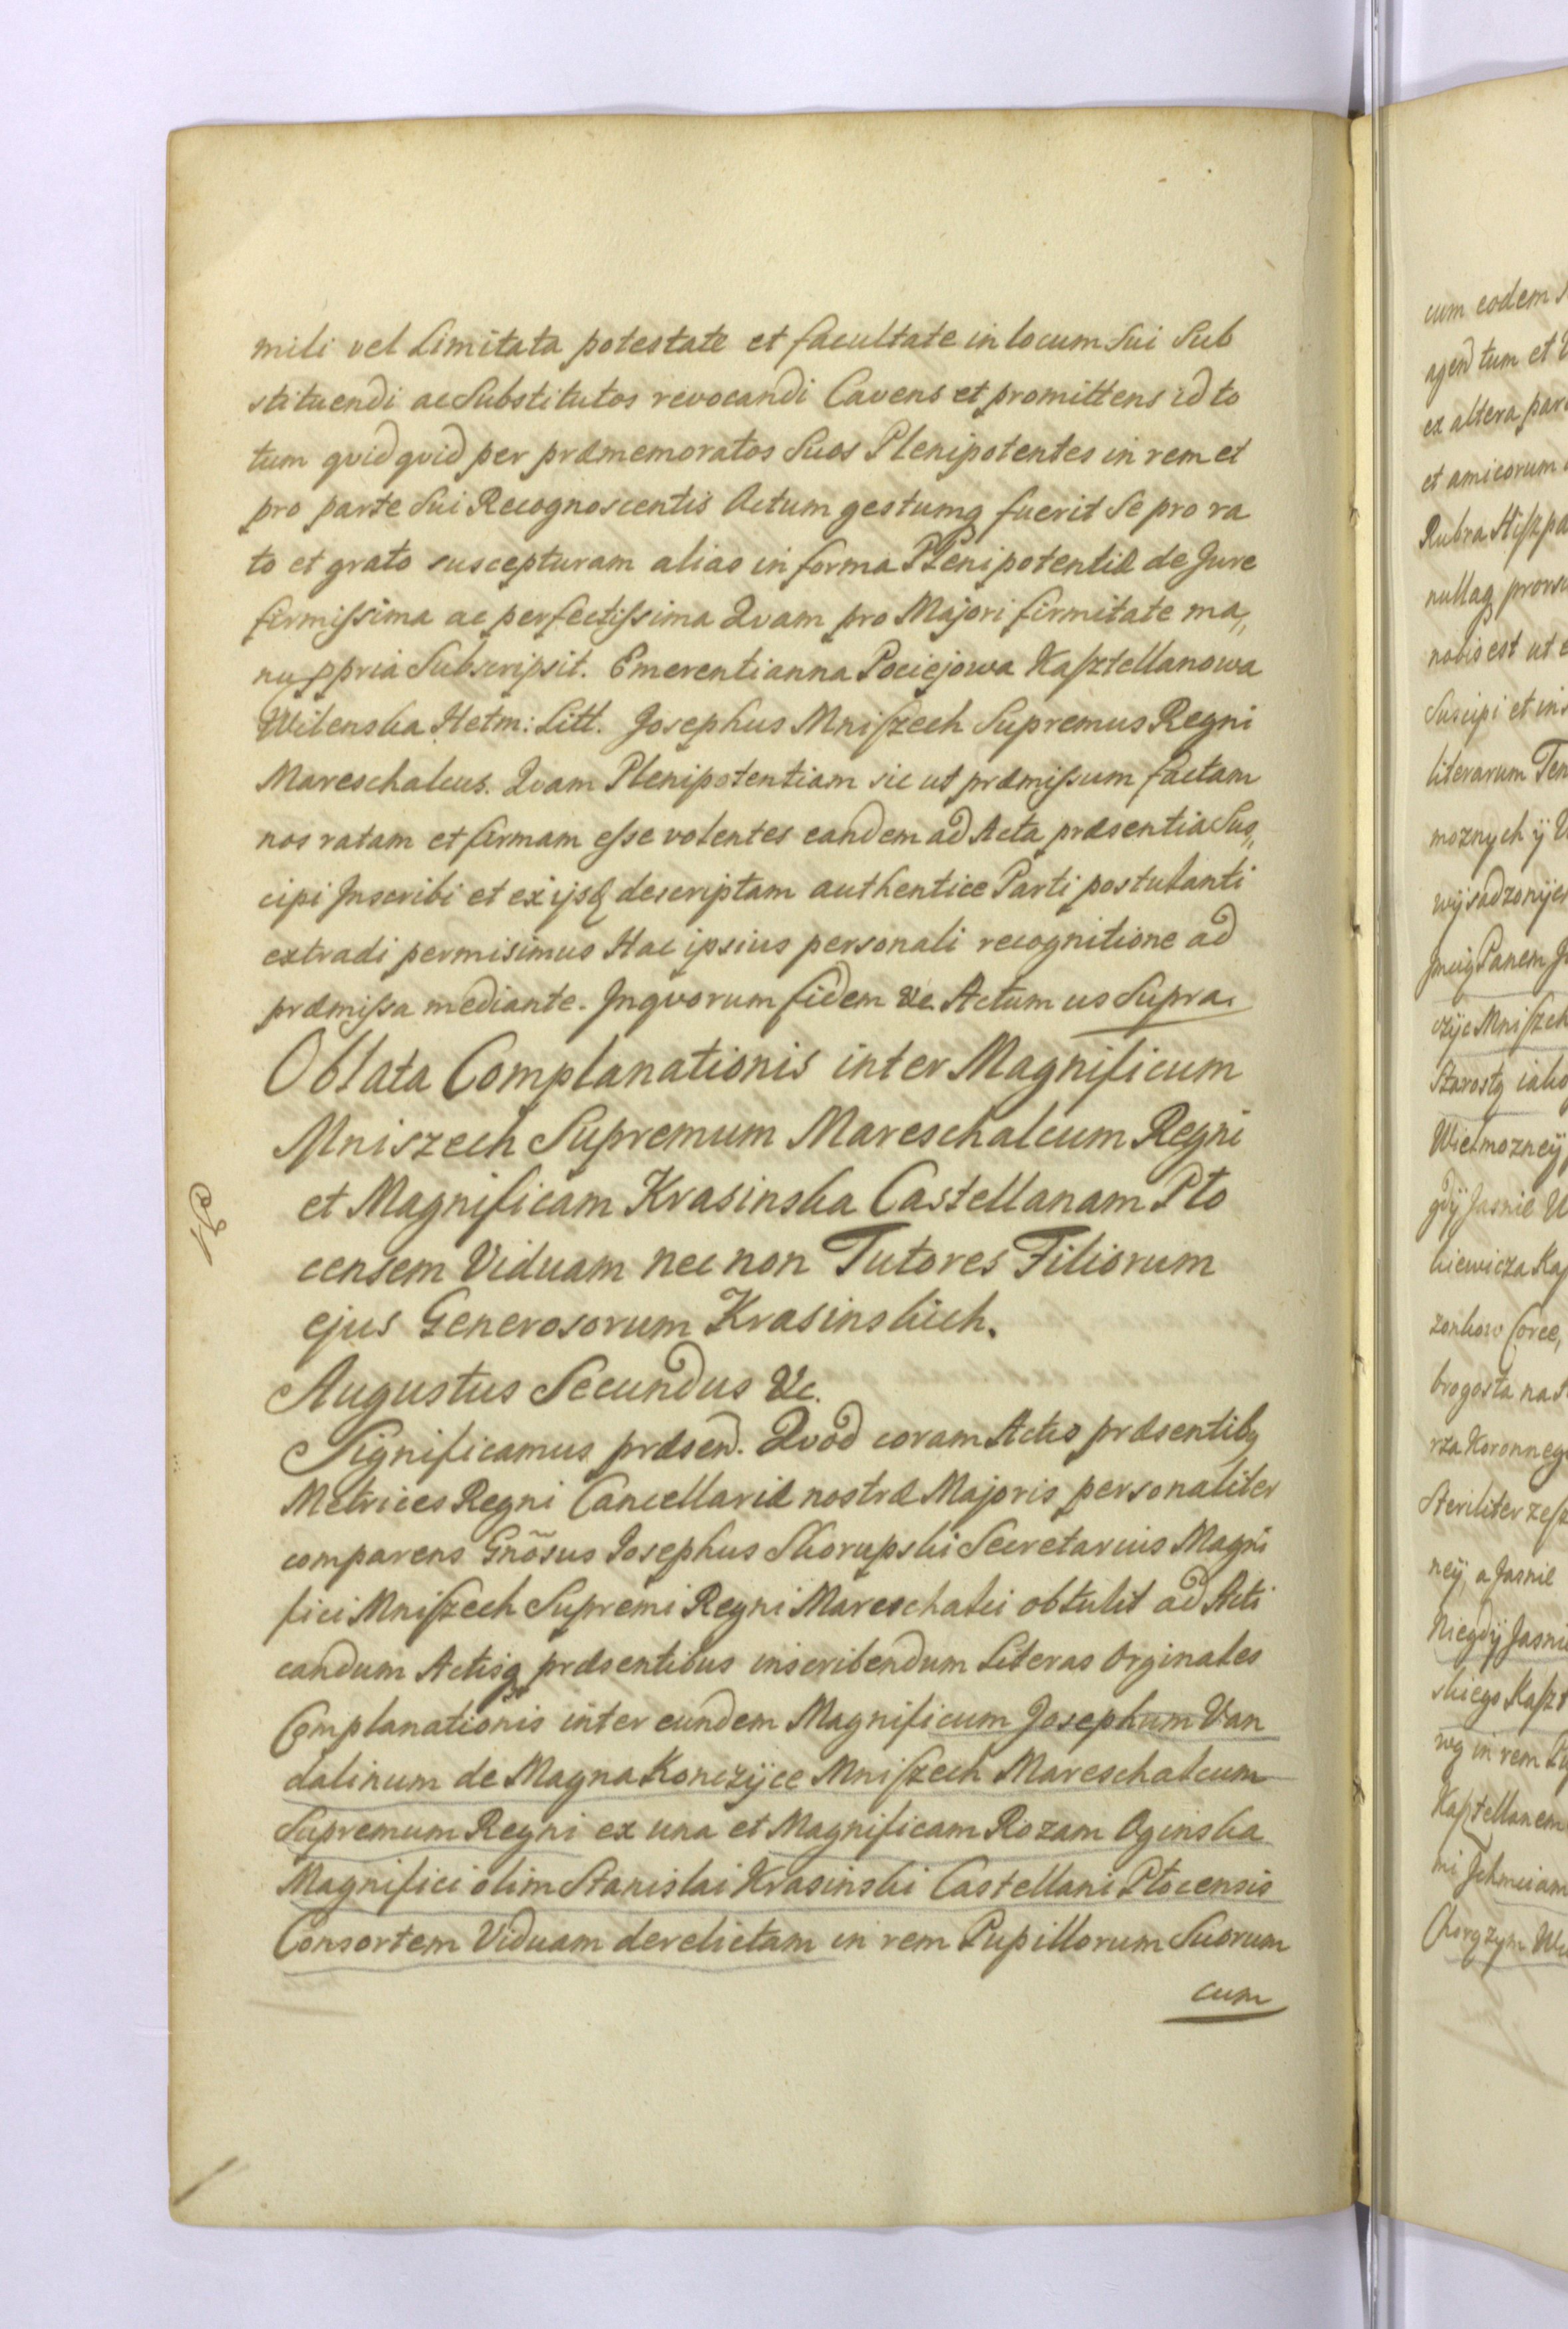 mili vel Limitata potestate et facultate in locum Sui Sub
stituendi ac Substitutos revocandi Cavens et promittens id to
tum quidquid per præmemoratos Suos Plenipotentes in rem et
pro parte Sui Recognoscentis Actum gestumq fuerit Se pro ra
to et grato suscepturam alias in forma Plenipotentiæ de Jure
firmiſsima ac perfectiſsima Quam pro Majori firmitate ma„
nu ppria Subscripsit. Emerentianna Pociejowa Kaſztellanowa
Wilenska Hetm: Litt. Josephus Mniſzech Supremus Regni
Mareschalcus. Quam Plenipotentiam sic ut præmiſsum factam
nos ratam et firmam eſse volentes eandem ad Acta præsentia Sus„
cipi Jnscribi et ex ijsq descriptam authentice Parti postulanti
extradi permisimus Hac ipsius personali recognitione ad
præmiſsa mediante. Jnquorum fidem &c Actum us Supra.
Oblata Complanationis inter Magnificum
Mniszech Supremum Mareschalcum Regni
et Magnificam Krasinska Castellanam Plo
censem Viduam nec non Tutores Filiorum
ejus Generosorum Krasinskich.
Augustus Secundus &c.
Significamus præsen. Quod coram Actis præsentibq
Metrices Regni Cancellariæ nostræ Majoris personaliter
comparens Gnõsus Josephus Skorupski Secretarius Magni
fici Mniſzech Supremi Regni Mareschalci obtulit ad Acti
candum Actisq præsentibus inscribendum Literas Orginales
Complanationis inter eundem Magnificum Josephum Van
dalinum de Magna Konczÿce Mniſzech Mareschalcum
Supremum Regni ex una et Magnificam Rozam Oginska
Magnifici olim Stanislai Krasinski Castellani Plocensis
Consortem Viduam derelictam in rem Pupillorum Suorum
cum
cum eodem
ajend tum et
ex altera par
et amicorum
nobis est ut
Suscipi et ins
literarum Ten
moznych ÿ
Starostą iako
Wielmozneÿ
zonkow
brogosta na
Steriliter
neÿ, a Jasnie
Niegdÿ Jasnie
skiego Kaſzt
in rem
Kaſztellanem